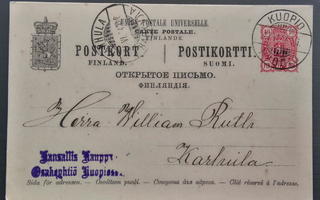 UNION POSTALE UNIVERSELLE.
CARTE POSTALE.
POSTKORT FINLANDE. POSTIKORTTI.
FINLAND. SUOMI.
ОТКРЫТОЕ ПИСЬМО.
ФИНЛЯНДІЯ.
KUOPIO
Herra William Ruth
Karhula
Kansallis Kauppa
Osakeyhtiö Kuopiossa
Sida för adressen. — Osoitteen puoli. — Сторона для адреса. — Côté réservé à l'adresse.